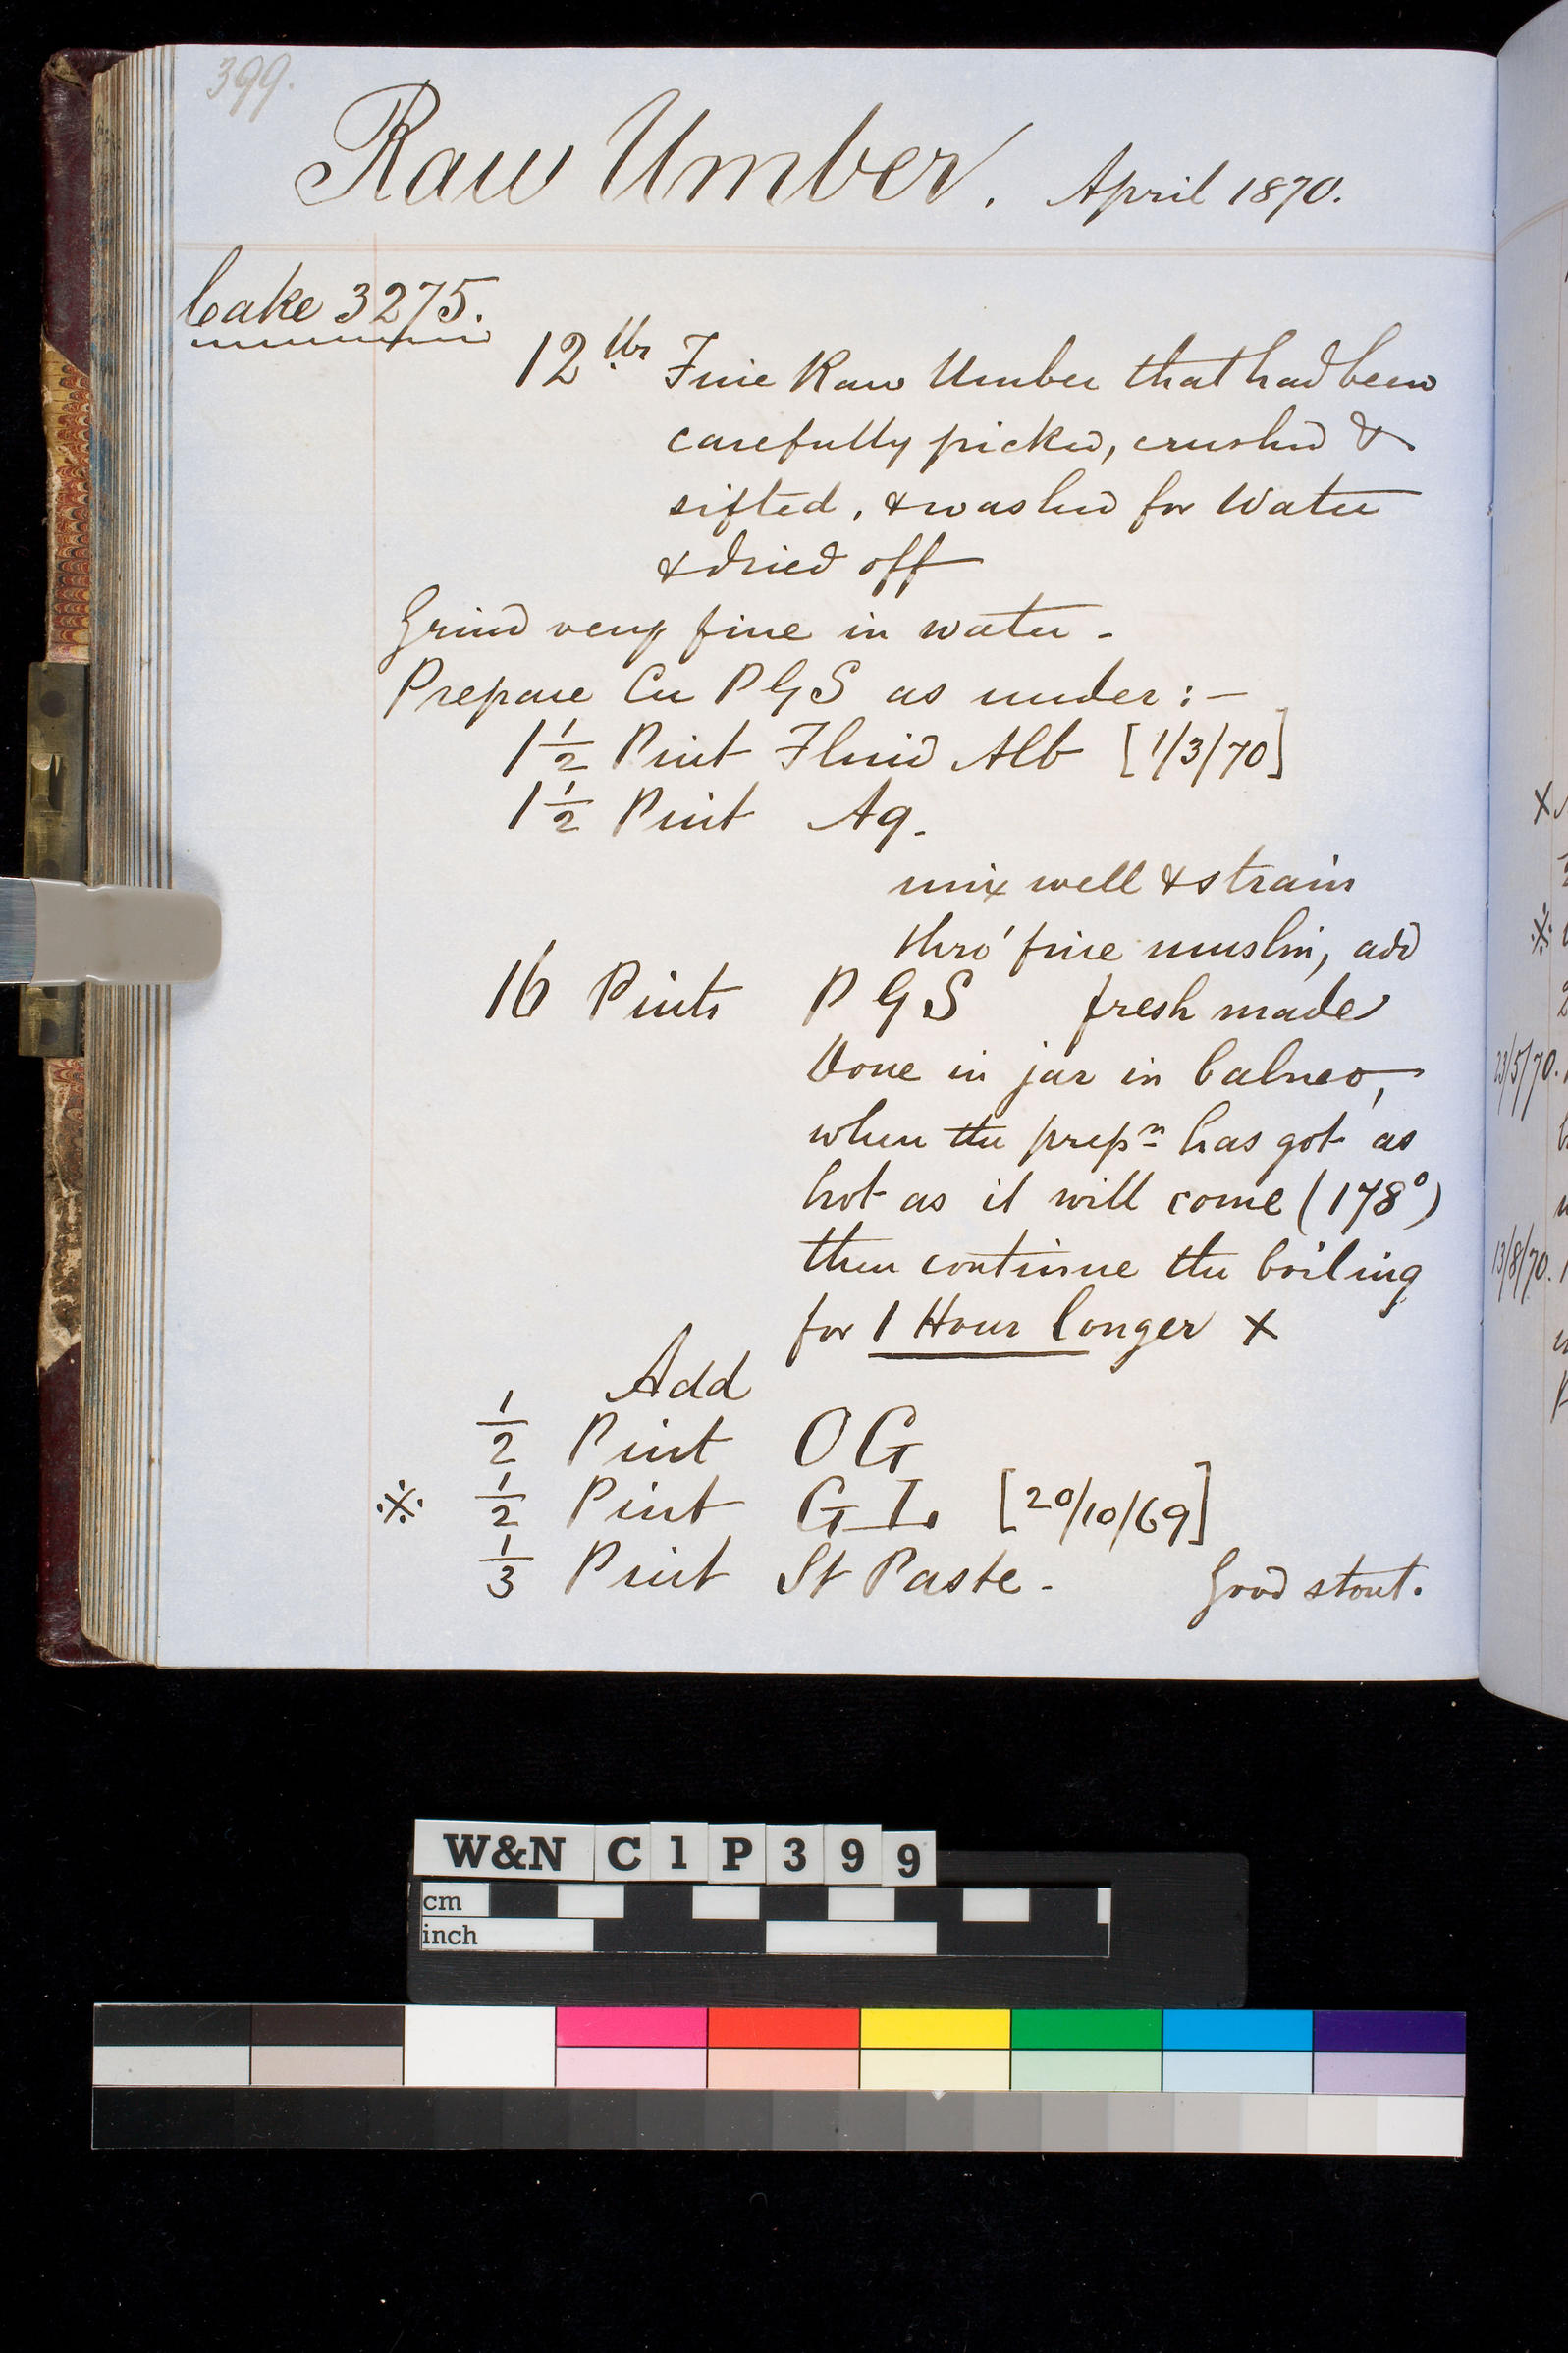 399.
Raw Umber. April 1870.
Cake 3275.
12 lbs Fine Raw Umber that had been
carefully picked, crushed &
sifted, & washed for Water
& dried off
Grind very fine in water -
Prepare Cu P G S as under :-
1 1/2 Pint Fluid Alb [1/3/70]
1 1/2 Pint Aq.
mix well & strain
thro' fine muslin, add
16 Pints P G S fresh made
Done in jar in balneo,
when the prepn has got as
hot as it will come (178°)
then continue the boiling
for 1 Hour longer X
Add
1/2 Pint O G
※ 1/2 Pint G I. [20/10/69]
1/3 Pint St Paste - Good stout.
X
※
23/5/70.
13/8/70.
W&N C 1 P 3 9 9
cm
inch